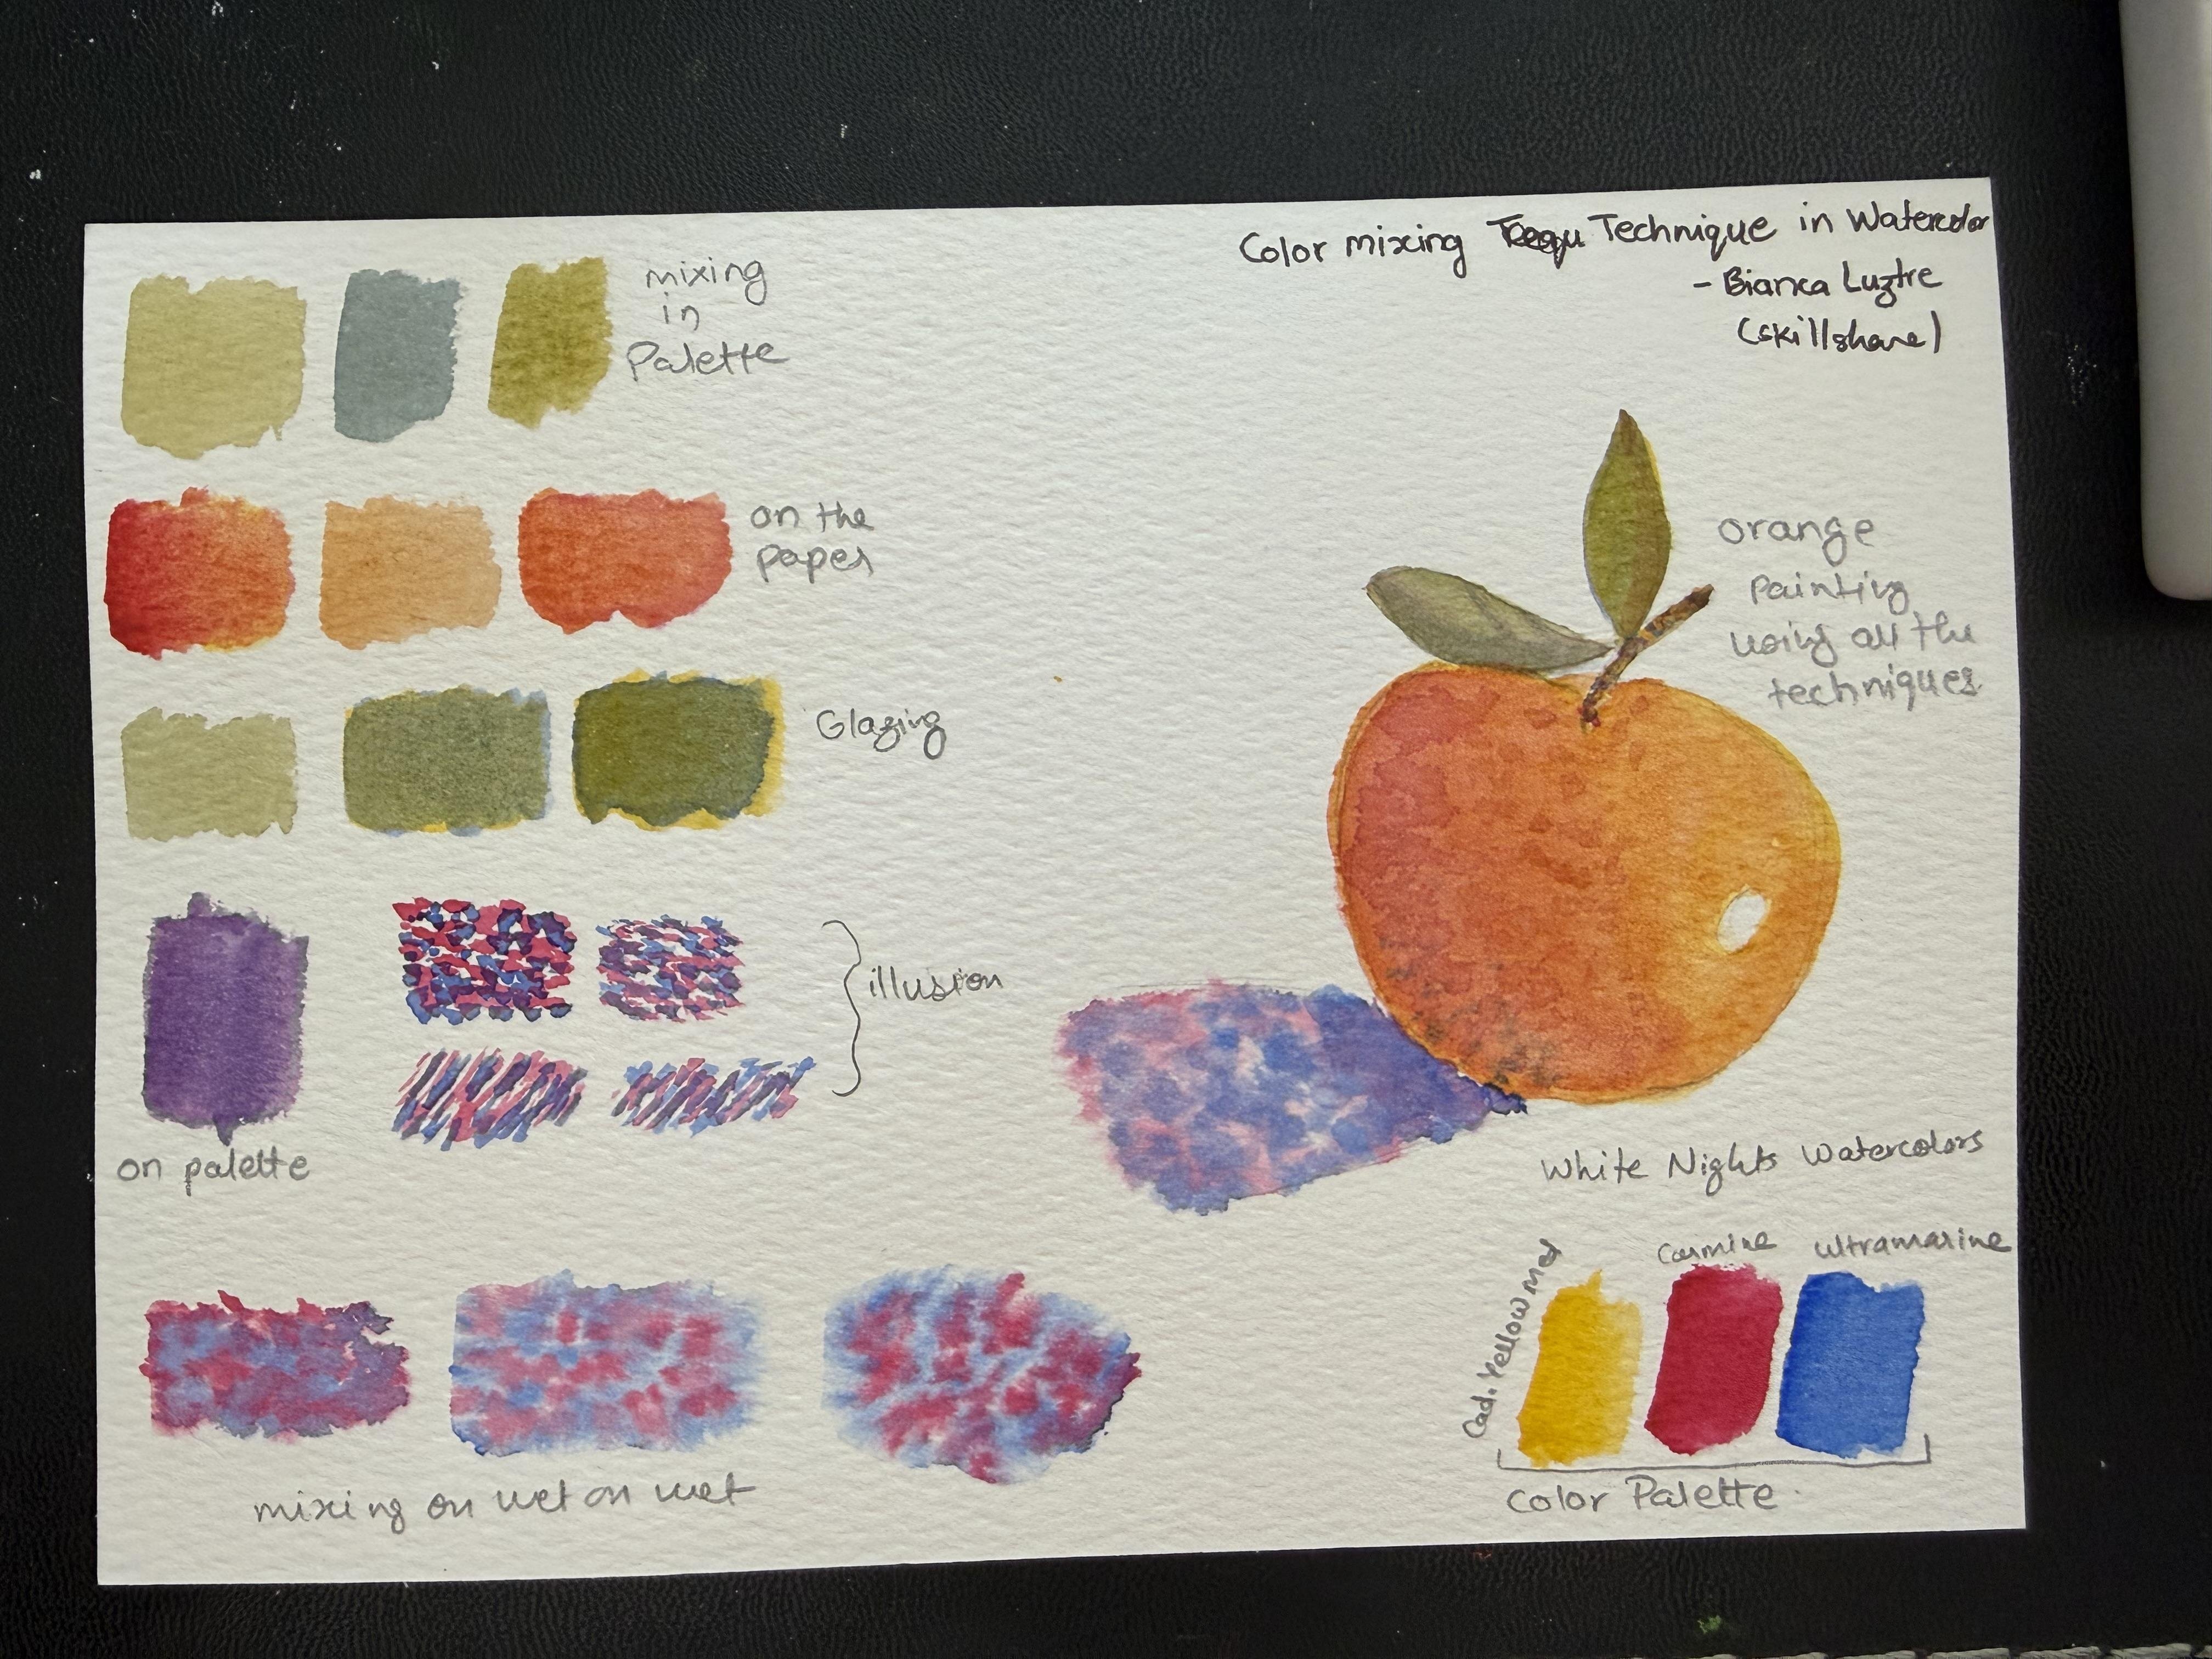 Color mixing Technique in Watercolor
- Bianca Luztre
(skillshare)
mixing
in
Palette
on the
paper
Glazing
on palette
illusion
mixing on wet on wet
orange
Painting
using all the
techniques
White Nights Watercolors
Cad. Yellow Med
Carmine
Ultramarine
Color Palette